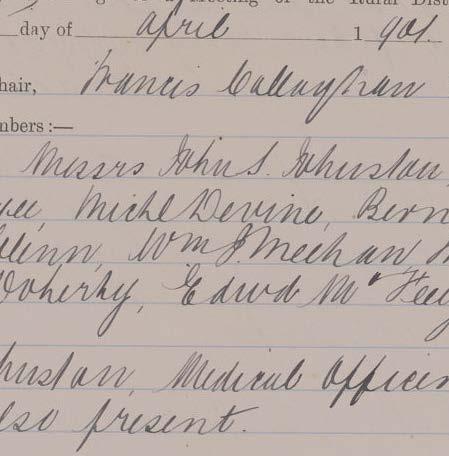 Meeting of the Rural Dist
day of April 1901.
hair, Francis Callaghan
mbers :—
Messrs John S. Johnston,
Michl Devine, Bern
Glenn, Wm J. Meehan
Doherty, Edwd McFeely
hnston, Medical Officer
also present.